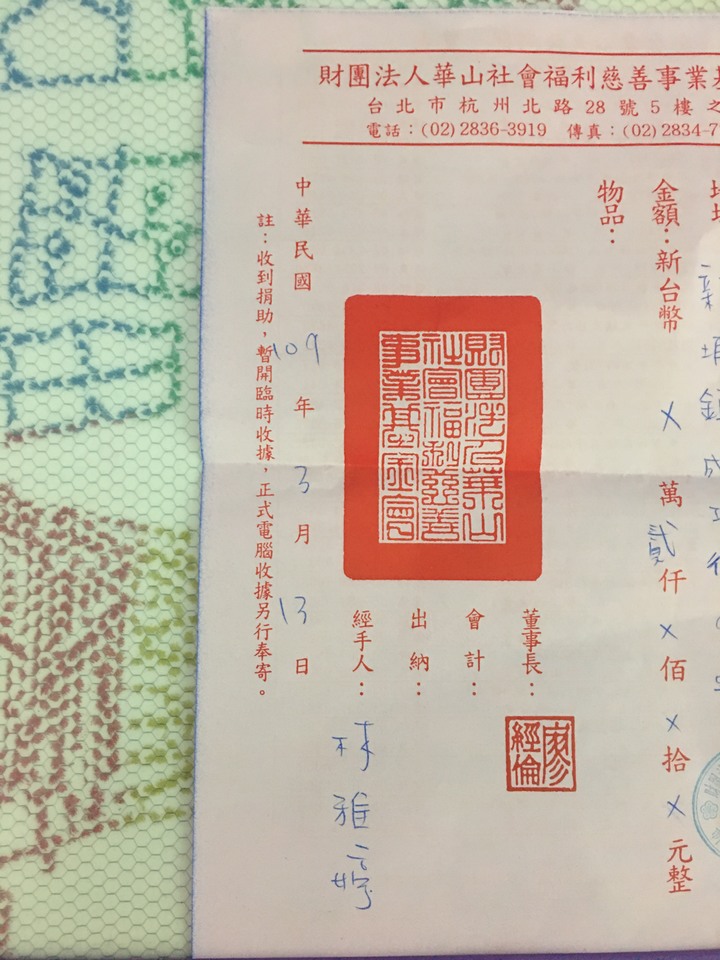 財團法人華山社會福利慈善事業
台北市杭州北路28號5樓之
電話：(02)2836-3919 傳真：(02)2834-7
金額：新台幣 X 萬 貳 仟 X 佰 X 拾 X 元整
物品：
財團法人華山
社會福利慈善
事業基金會
董事長：
廖經倫
會計：
出納：
經手人：林雅婷
中華民國 109 年 3 月 13 日
註：收到捐助，暫開臨時收據，正式電腦收據另行奉寄。